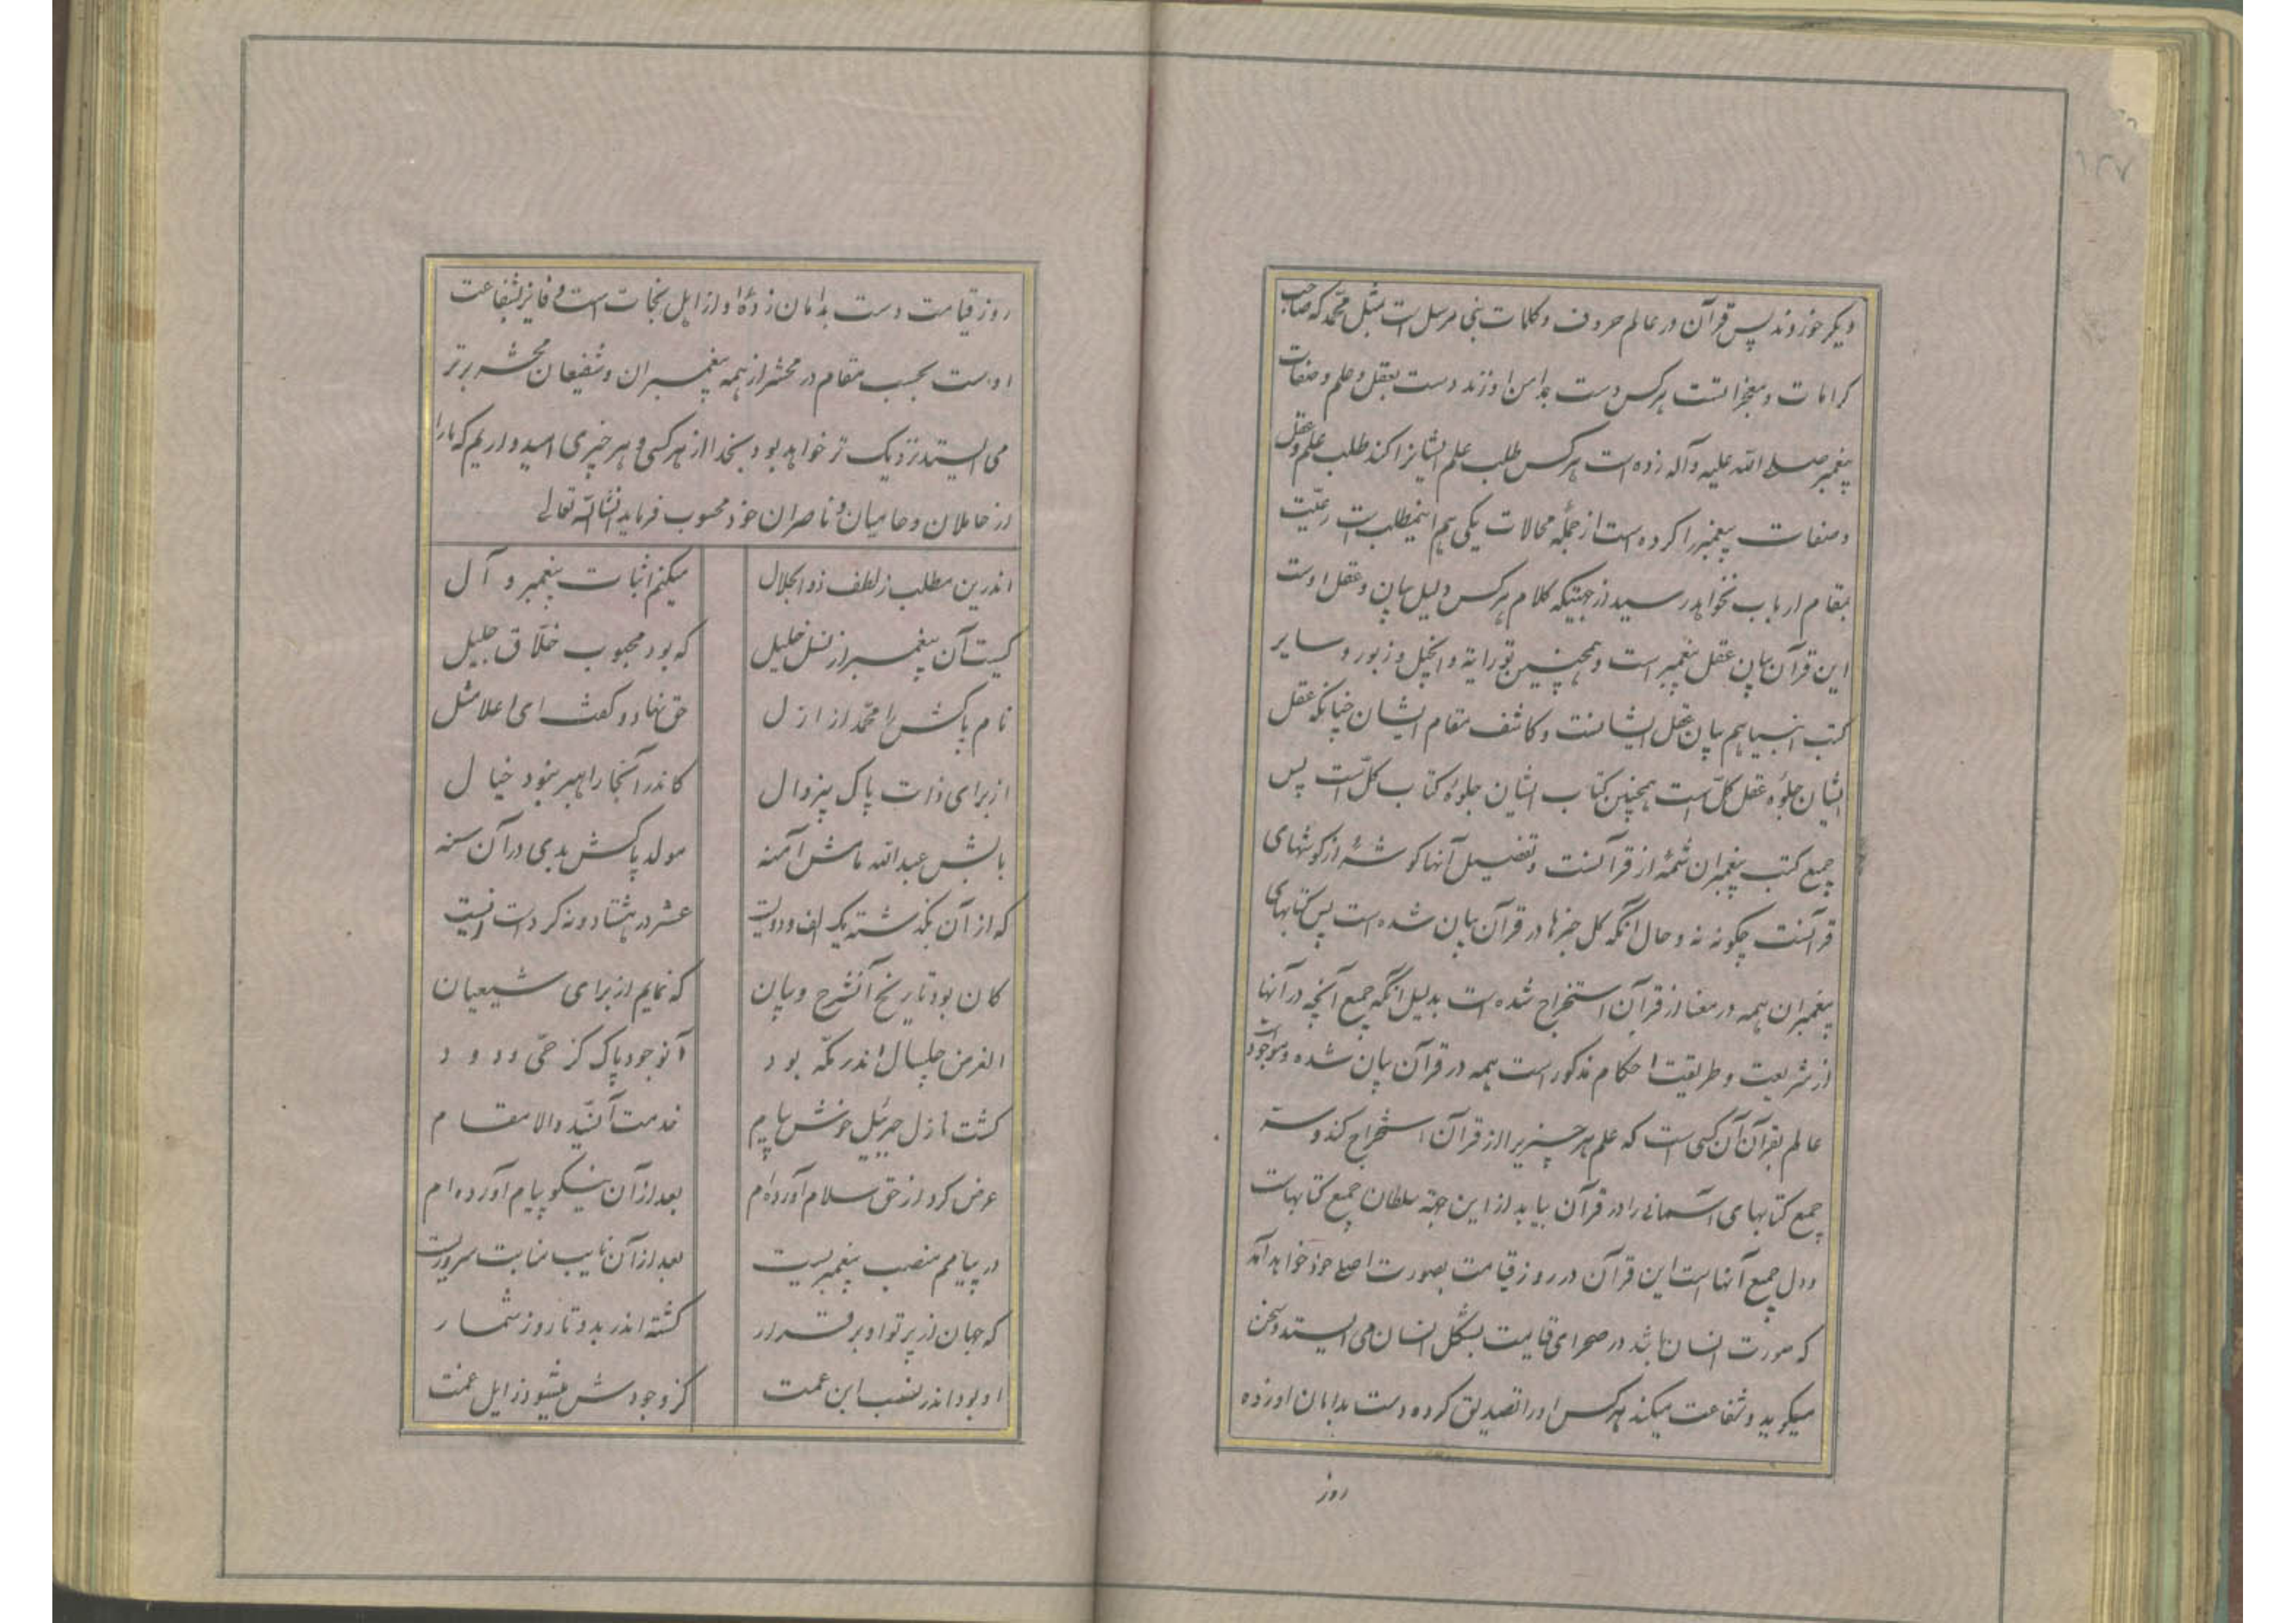 دیگر خورند پس قرآن در عالم حروف و کلمات بنی مرسل است مثل محمّد که صاحب
کرامات و معجزاتست هر کس دست بدامن او زند دست بعقل و علم و صفات
پیغمبر صلے الله علیه وآله زده است هر کس طلب علم ایشانرا کند طلب علم و عقل
و صفات پیغمبر را کرده است از جمله محالات یکی هم اینمطلب است رعیّت
بمقام ارباب نخواهد رسید از جهتیکه کلام هر کس دلیل بیان و عقل اوست
این قرآن بیان عقل پیغمبر است و همچنین تورایة و انجیل و زبور و سایر
کتب انبیا هم بیان عقل ایشانست و کاشف مقام ایشان چنانکه عقل
ایشان جلوه عقل کلّ است همچنین کتاب ایشان جلوۀ کتاب کلّ است پس
جمیع کتب پیغمبران شمۀ از قرآنست و تفصیل آنها کوشۀ از کوشهای
قرآنست چگونه نه و حال آنگه کل چیزها در قرآن بیان شده است پس کتابهای
پیغمبران همه در معنا از قرآن استخراج شده است بدلیل انگه جمیع آنچه در آنها
از شریعت و طریقت احکام مذکور است همه در قرآن بیان شده و موجود است
عالم بقرآن آن کسی است که علم هر چیزیرا از قرآن استخراج کند و
جمیع کتابهای آسمانی را در قرآن بیابد از این جهة سلطان جمیع کتابهاست
و دل جمیع آنهاست این قرآن در روز قیامت بصورت اصلے خود خواهد آمد
که صورت انسان باشد در صحرای قیامت بشکل انسان می ایستد و سخن
میکوید و شفاعت میکند هر کس او را تصدیق کرده دست بدامان او زده
روز
روز قیامت دست بدامان زدۀ او از اهل نجات است و فایز بشفاعت
اوست بحسب مقام در محشر از همه پیغمبران و شفیعان محشر برتر
می ایستد نزدیک تر خواهد بود بخدا از هر کسی و هر چیزی امیدواریم که مارا
از حاملان و حامیان و ناصران خود محسوب فرماید انشاالله تعالی
اندرین مطلب ز لطف ذوالجلال میکنم اثبات پیغمبر و آل
کیست آن پیغمبر از نسل خلیل که بود محبوب خلّاق جلیل
نام پاکش را محمّد از ازل حق نهاد و گفت ای اعلا مثل
از برای ذات پاک بیزوال کاندر آنجا راهبر نبود خیال
بابش عبدالله مامش آمنه مولد پاکش بدی در آن سنه
که از آن بگذشته یک الف و دویست عشر در هشتاد و نه کردست و نیست
کان بود تاریخ آنشرح و بیان که نمایم از برای شیعیان
الغرض چلسال اندر مکّه بود آنوجود پاک کز حیّ ودود
کشت نازل جبرئیل خوش پیام خدمت آنسیّد والا مقام
عرض کرد از حق سلام آورده‌ام بعد از آن نیکو پیام آورده‌ام
در پیامم منصب پیغمبریست بعد از آن نایب منابت سروریست
که جهان از پرتو او برقرار کشته اندر بدو تا روز شمار
او بود اندر نسب ابن عمت کز وجودش میشود زایل غمت